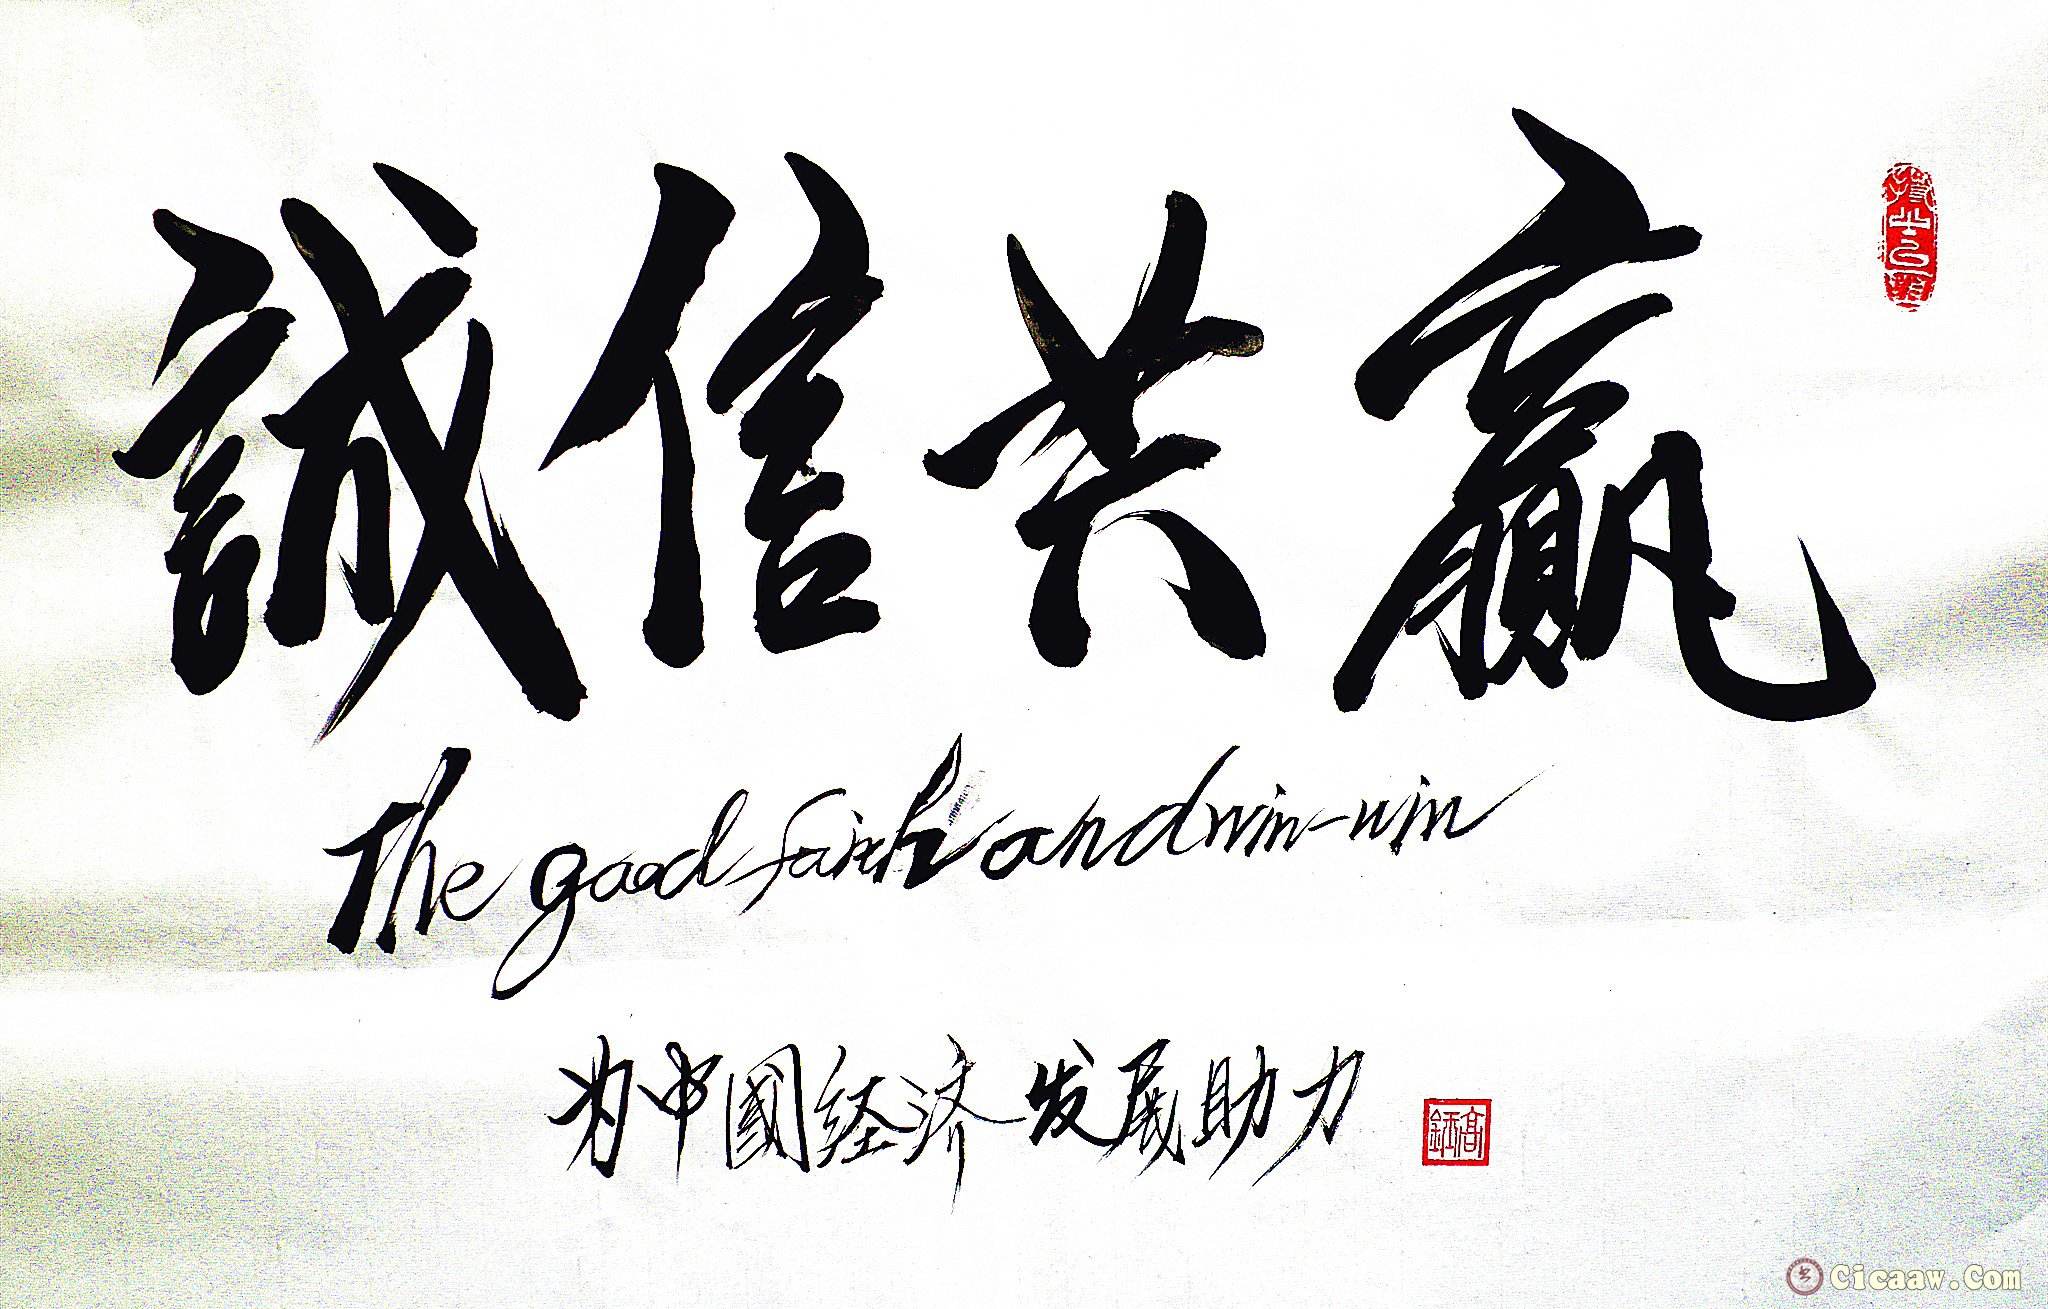 誠信共赢
The good faith and win-win
为中國经济发展助力
Cicaaw.Com